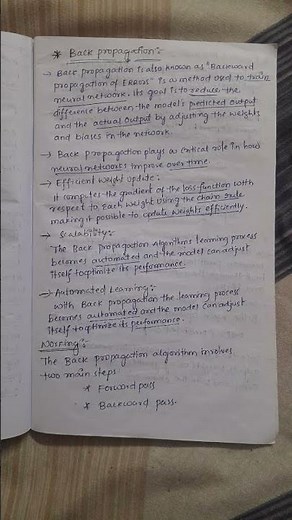 * Back propagation :-
→ Back propagation is also known as "Backward
propagation of ERRORS" is a method used to train
neural network. Its goal is to reduce the
difference between the model's predicted output
and the actual output by adjusting the weights
and biases in the network.
→ Back propagation plays a critical role in how
neural networks improve over time
→ Efficient weight update :-
It computes the gradient of the loss function with
respect to each weight using the chain rule
making it possible to update weights efficiently.
→ Scalability :-
The Back propagation algorithms learning process
becomes automated and the model can adjust
itself to optimize its performance.
→ Automated Learning :-
With Back propagation the learning process
becomes automated and the model can adjust
itself to optimize its performance.
Working :-
The Back propagation algorithm involves
two main steps
* Forward pass
* Backward pass.